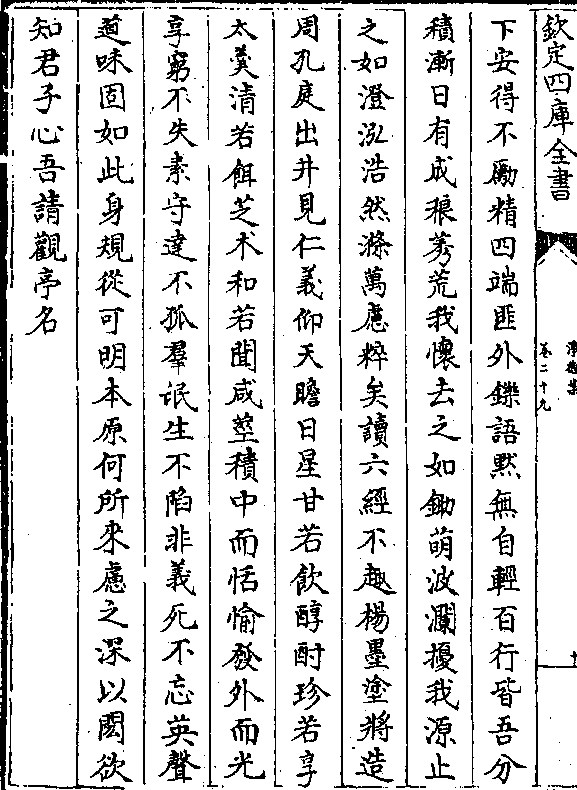 欽定四庫全書
卷二十九
下安得不勵精四端匪外鑠語黙無自輕百行皆吾分
積漸日有成稂莠荒我懷去之如鋤萌波瀾擾我源止
之如澄泓浩然滌萬慮粹矣讀六經不趣楊墨塗將造
周孔庭出井見仁義仰天瞻日星甘若飲醇酎珍若享
太羮清若餌芝木和若聞咸䪫積中而恬愉發外而光
亨窮不失素守達不孤羣氓生不陷非義死不忘英聲
道味固如此身規從可明本原何所來慮之深以閎欲
知君子心吾請觀亭名